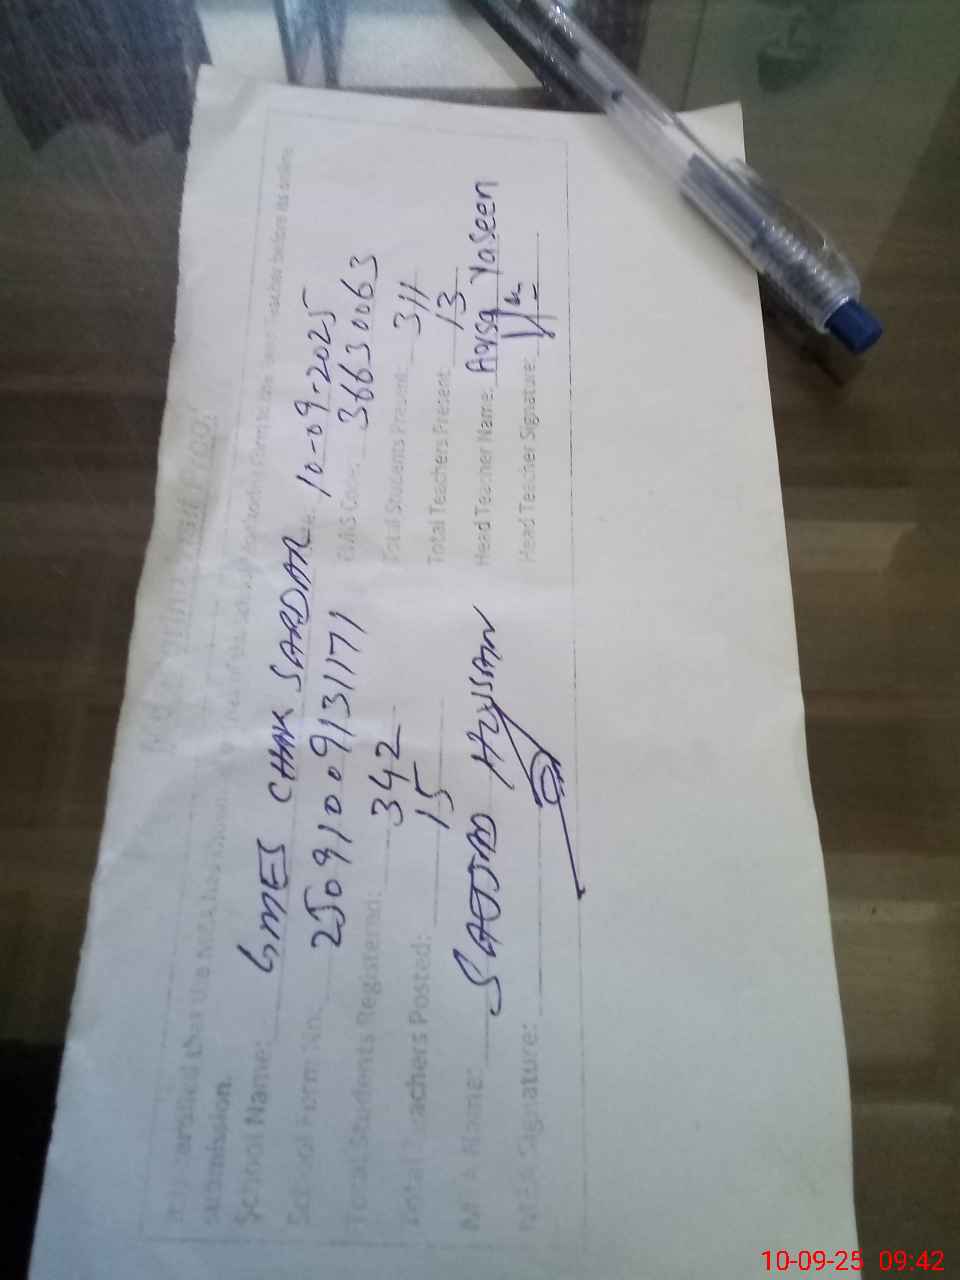 It is certified that the MEA has shown
submission.
School Name: GMES CHAK SARDAR 10-09-2025
School Form No: 250910091 31171 EMIS Code: 36630063
Total Students Registered: 342 Total Students Present: 311
Total Teachers Posted: 15 Total Teachers Present: 13
MEA Name: SAJJAD HUSSAIN Head Teacher Name: Aqsa Yaseen
MEA Signature: Head Teacher Signature:
10-09-25 09:42